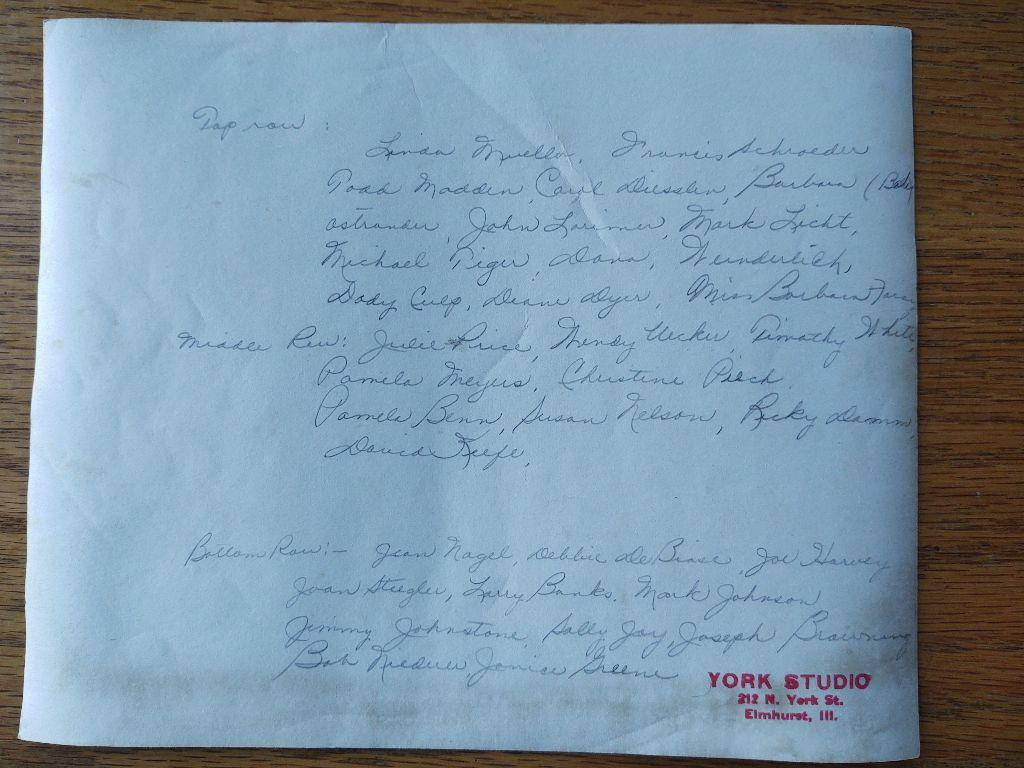 Top row :
Linda Mueller, Francis Schroeder
Todd Madden, Caryl Diesslin, Barbara (
ostrander, John Lorimer, Mark Licht,
Michael Tiger, Dana, Wunderlich,
Dody Culp, Diane Dyer, Miss Barbara
Middle Row: Julie Price, Wendy Uecker, Timothy White,
Pamela Meyers, Christine Piech.
Pamela Benn, Susan Nelson, Ricky Damm,
David Keefe,
Bottom Row:- Jean Nagel, Debbie DeBiase, Joe Harvey
Joan Stiegler, Larry Banks. Mark Johnson
Jimmy Johnstone, Sally Jay, Joseph Browning
Bob Niederer Janice Greene
YORK STUDIO
212 N. York St.
Elmhurst, Ill.